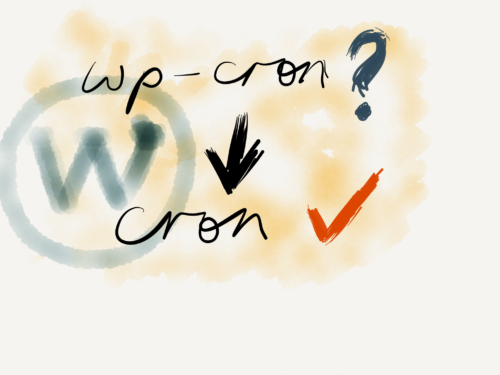 wp-cron?
W
cron